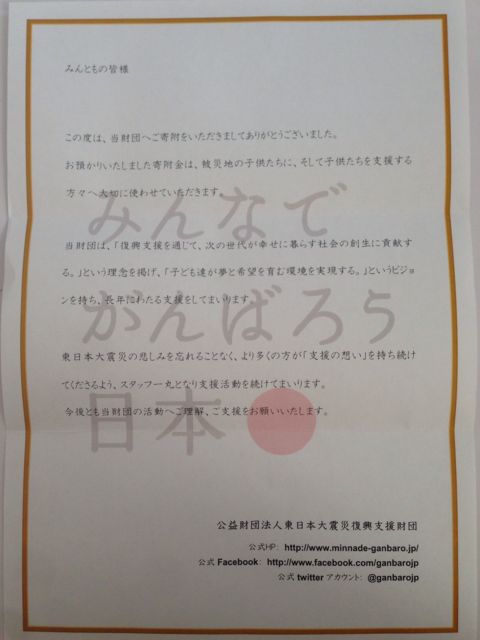 みんともの皆様
この度は、当財団へご寄附をいただきましてありがとうございました。
お預かりいたしました寄附金は、被災地の子供たちに、そして子供たちを支援する
方々へ大切に使わせていただきます。
みんなで
当財団は、「復興支援を通じて、次の世代が幸せに暮らす社会の創生に貢献す
る。」という理念を掲げ、「子ども達が夢と希望を育む環境を実現する。」というビジョ
ンを持ち、長年にわたる支援をしてまいります。
がんばろう
東日本大震災の悲しみを忘れることなく、より多くの方が「支援の想い」を持ち続け
てくださるよう、スタッフ一丸となり支援活動を続けてまいります。
今後とも当財団の活動へご理解、ご支援をお願いいたします。
日本
公益財団法人東日本大震災復興支援財団
公式HP: http://www.minnade-ganbaro.jp/
公式 Facebook: http://www.facebook.com/ganbarojp
公式 twitter アカウント: @ganbarojp